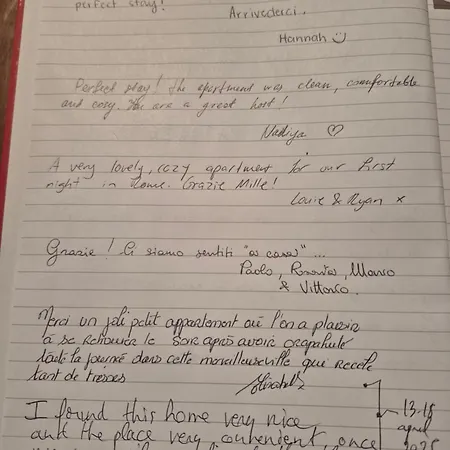 perfect stay!
Arrivederci.
Hannah
Perfect stay! The apartment was clean, comfortable
and cosy. You are a great host!
Nadiya
A very lovely, cozy apartment for our first
night in Rome. Grazie Mille!
Louie & Ryan x
Grazie! Ci siamo sentiti "a casa"...
Paolo, Rosaria, Marco
& Vittorio.
Merci un joli petit appartement où l'on a plaisir
à se retrouver le soir après avoir crapahuté
toute la journée dans cette merveilleuse ville qui recèle
tant de trésors
I found this home very nice,
and the place very convenient, once
13-18
april